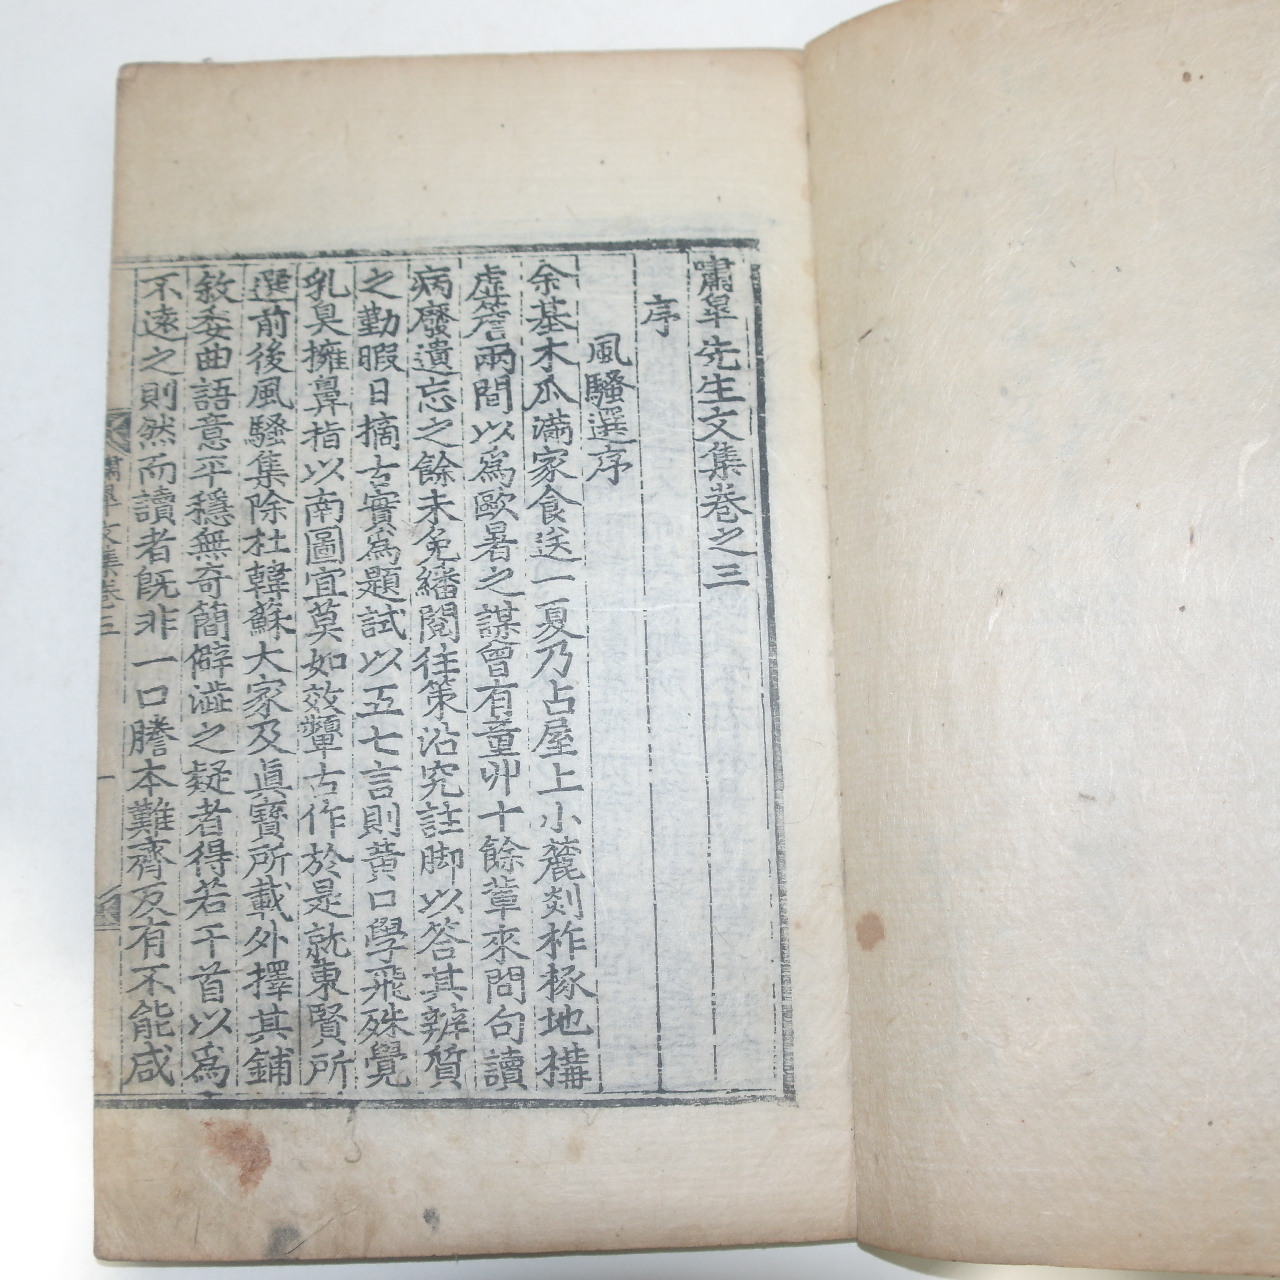 嘯皐先生文集卷之三
序
風騷選序
余基木瓜滿家食送一夏乃占屋上小麓剡柞椓地構
虛簷兩間以爲歐暑之謀曾有童丱十餘輩來問句讀
病廢遺忘之餘未免繙閱往策沿究註脚以答其辨質
之勤暇日摘古實爲題試以五七言則黃口學飛殊覺
乳臭擁鼻指以南圖宜莫如效顰古作於是就東賢所
選前後風騷集除杜韓蘇大家及眞寶所載外擇其鋪
敘委曲語意平穩無奇簡僻澁之疑者得若干首以爲
不遠之則然而讀者旣非一口謄本難齊反有不能咸
嘯皐文集卷三
一